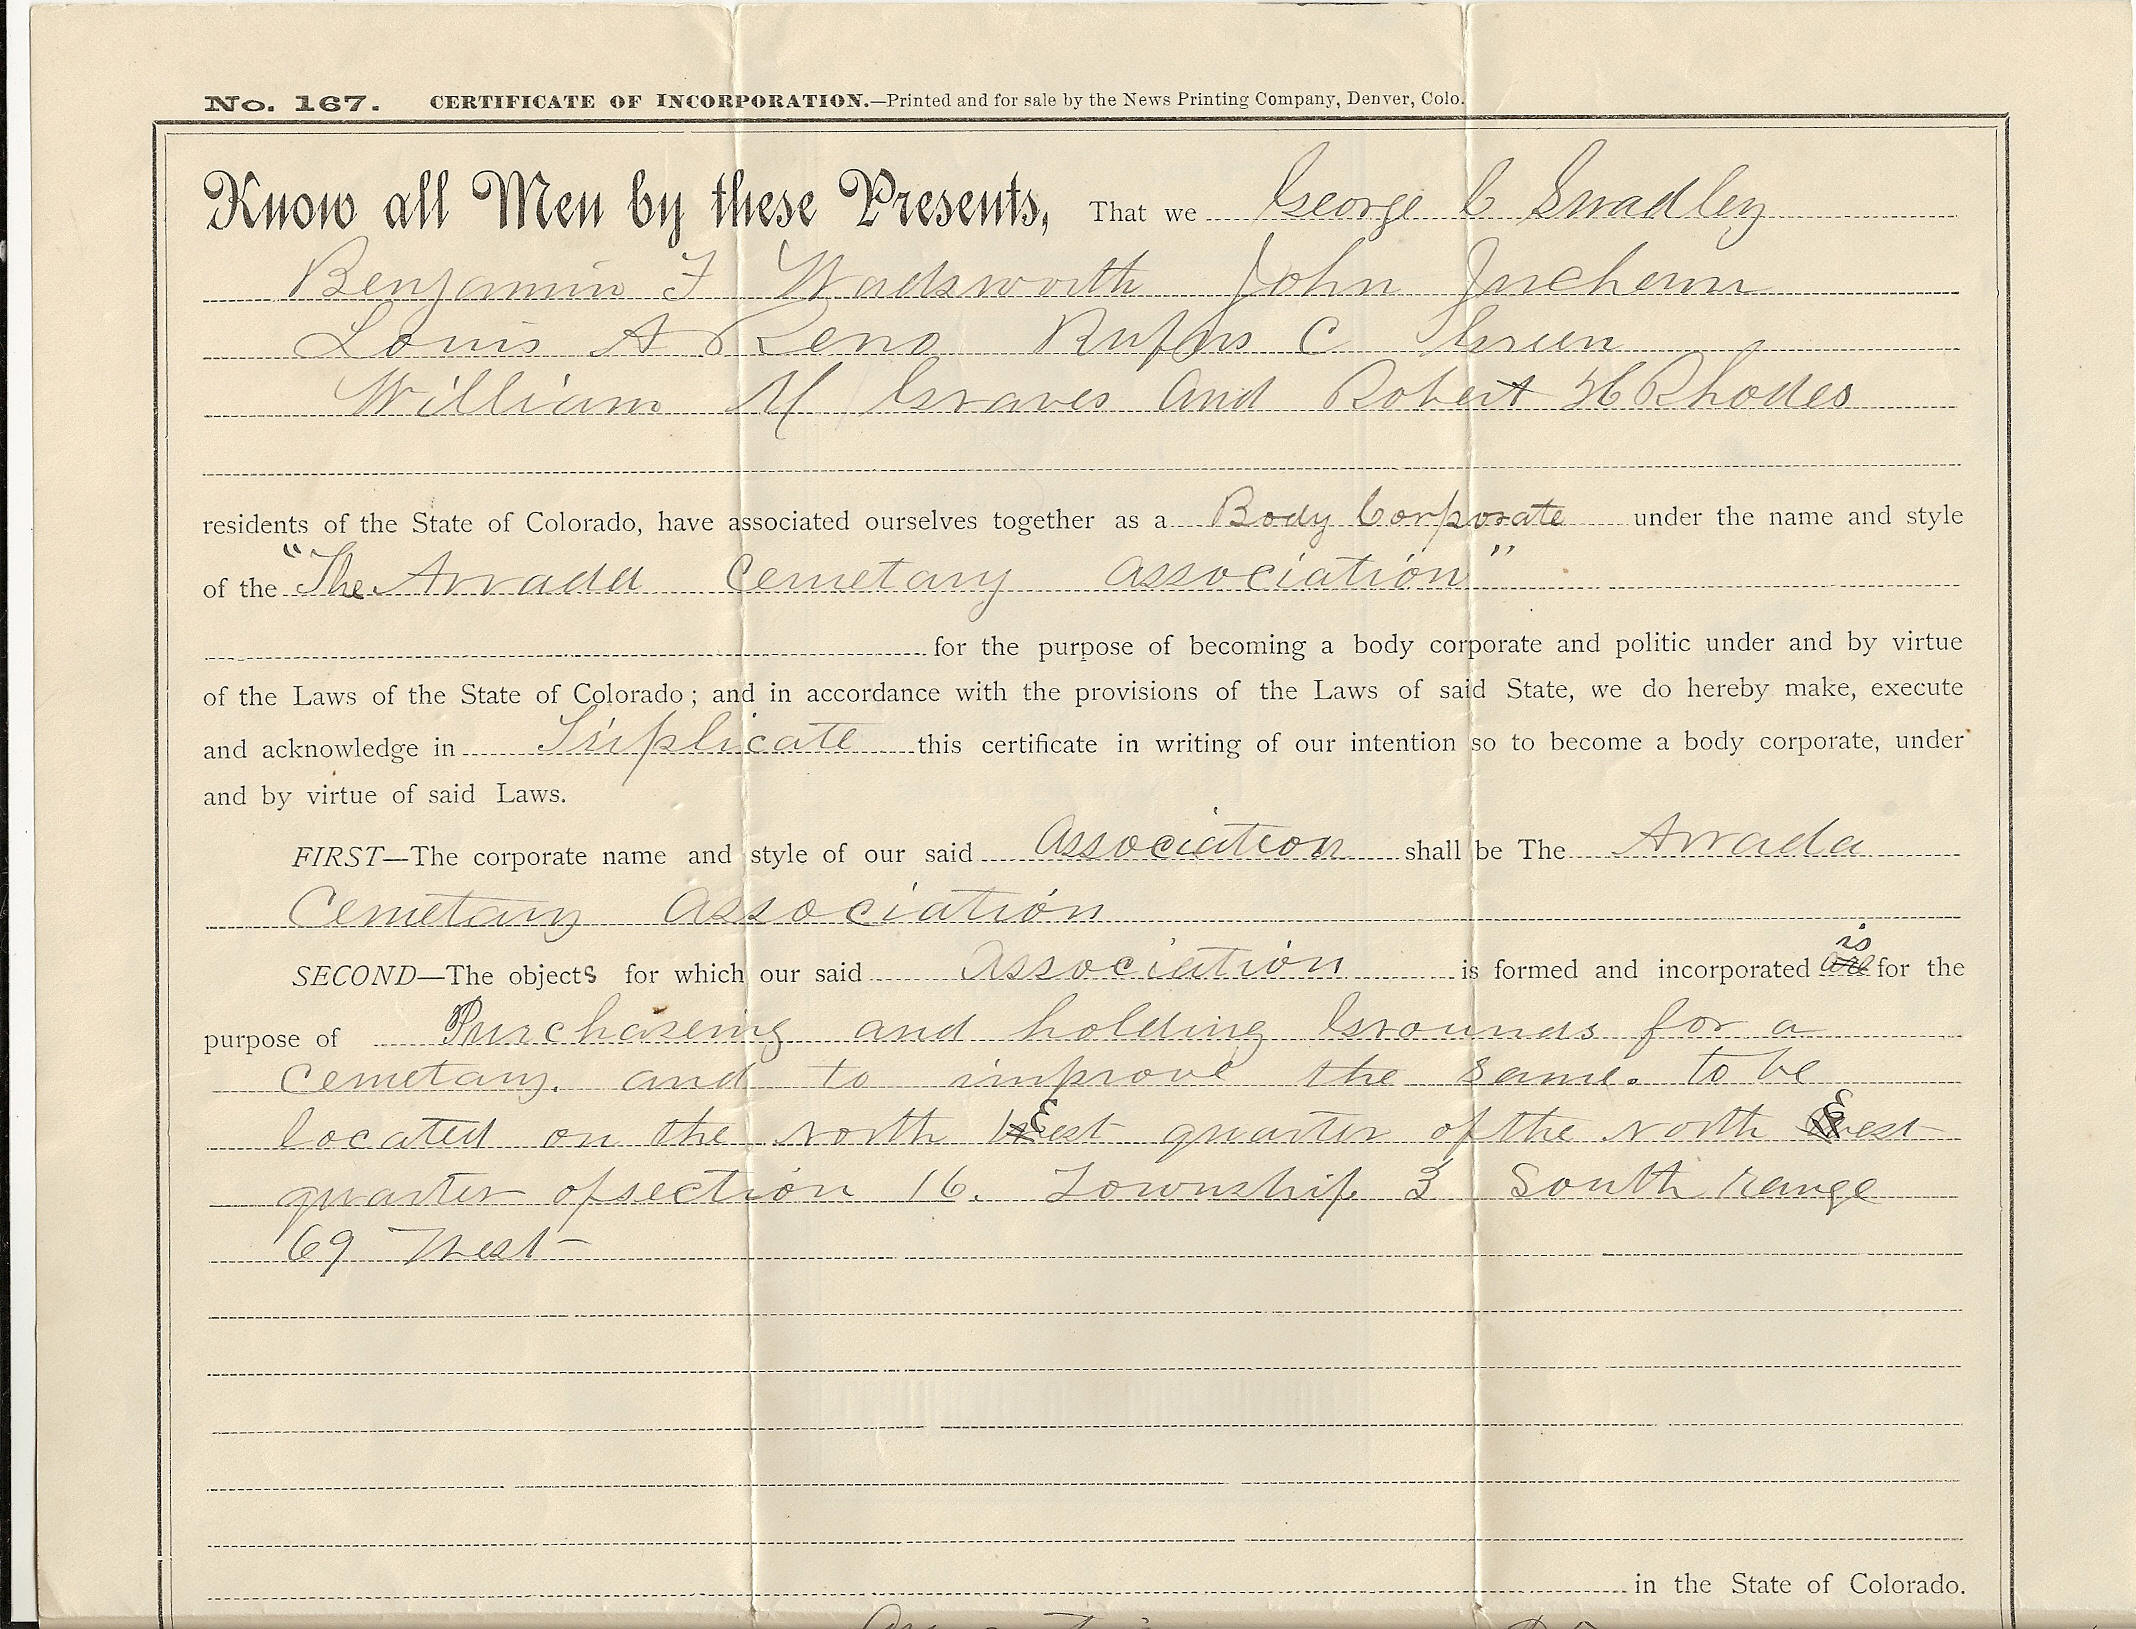 No. 167. CERTIFICATE OF INCORPORATION.—Printed and for sale by the News Printing Company, Denver, Colo.
Know all Men by these Presents, That we George C Swadley
Benjamin F Wadsworth John Juchem
Louis A Reno Rufus C
William M Graves and Robert H Rhodes
residents of the State of Colorado, have associated ourselves together as a Body Corporate under the name and style
of the "The Arvada Cemetary Association"
for the purpose of becoming a body corporate and politic under and by virtue
of the Laws of the State of Colorado; and in accordance with the provisions of the Laws of said State, we do hereby make, execute
and acknowledge in Triplicate this certificate in writing of our intention so to become a body corporate, under
and by virtue of said Laws.
FIRST—The corporate name and style of our said Association shall be The Arvada
Cemetary Association
is
SECOND—The objects for which our said Association is formed and incorporated are for the
purpose of Purchaseing and holding Grounds for a
Cemetary. and to improve the same. to be
located on the north East quarter of the north East
quarter of section 16. Township 3 South range
69 West
in the State of Colorado.